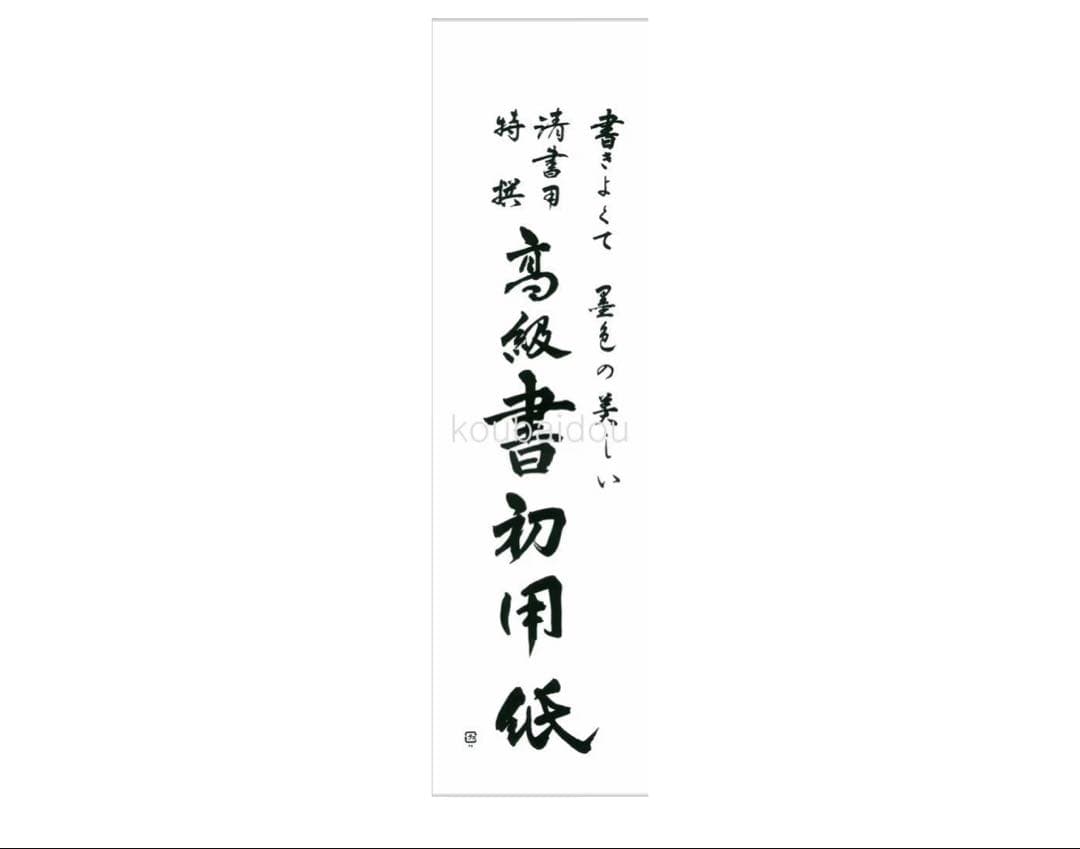 書きよくて 墨色の美しい
清書用
特撰
高級書初用紙
koubaidou